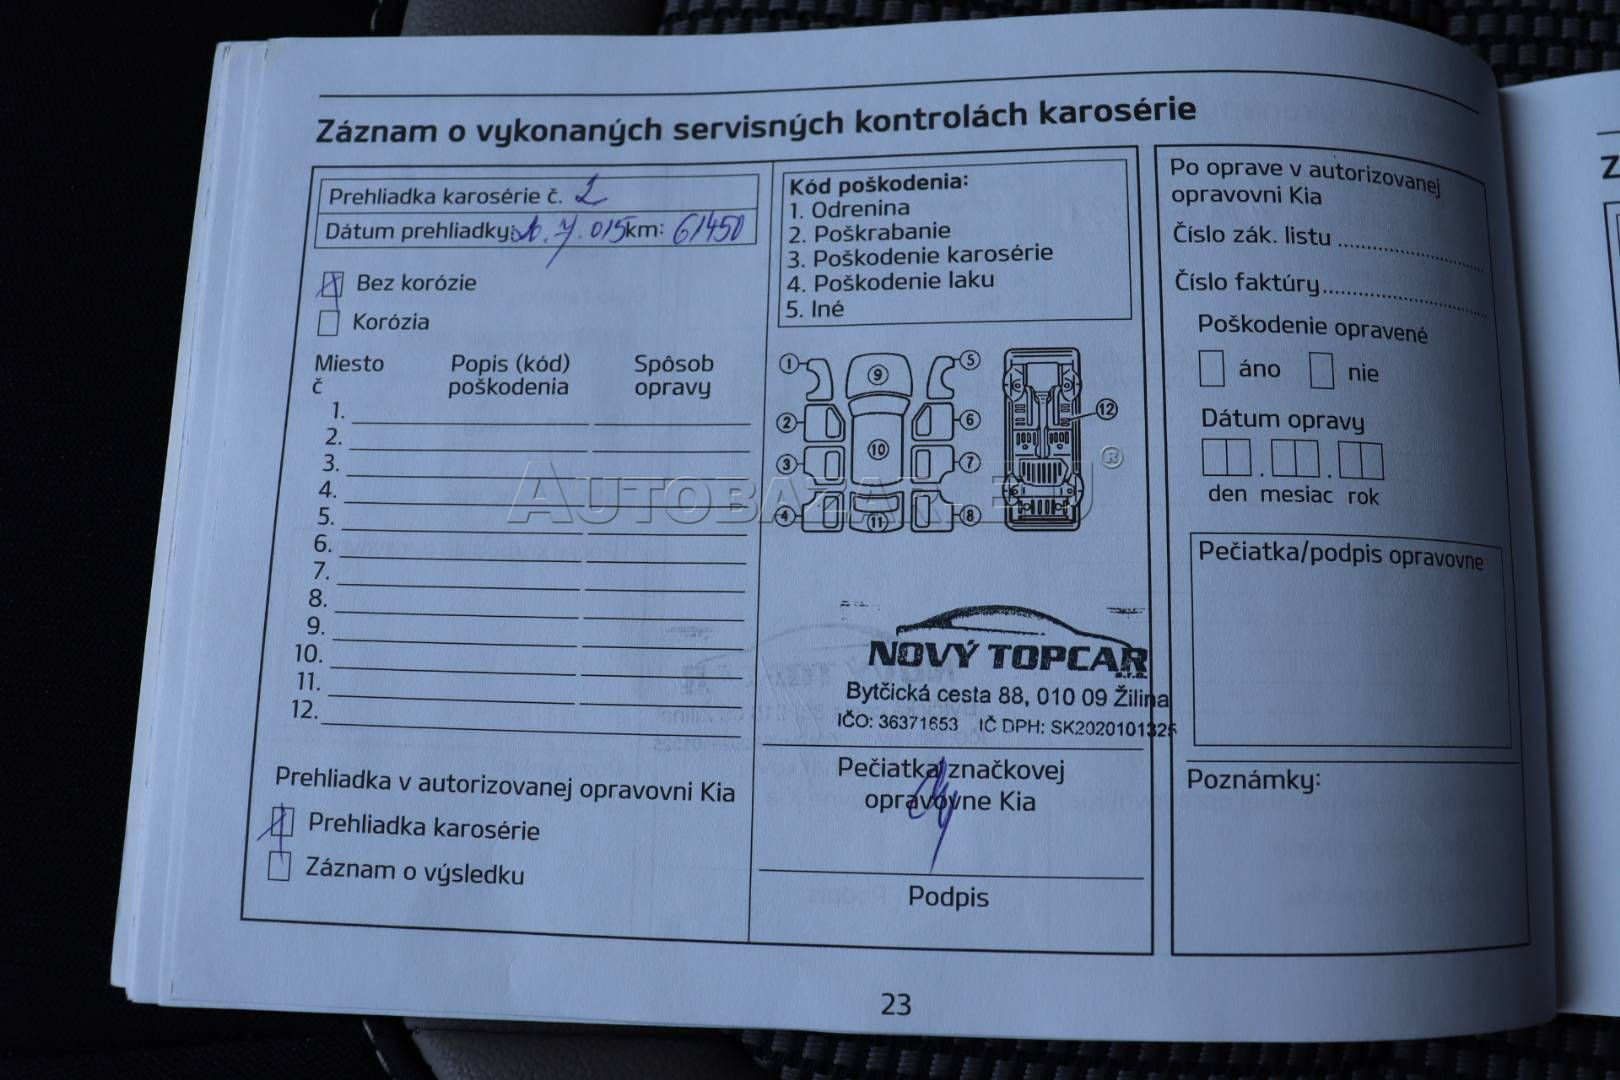 Záznam o vykonaných servisných kontrolách karosérie
Prehliadka karosérie č. 2
Dátum prehliadky: 7. 015 km: 61450
Bez korózie
Korózia
Miesto č
Popis (kód) poškodenia
Spôsob opravy
1.
2.
3.
4.
5.
6.
7.
8.
9.
10.
11.
12.
Prehliadka v autorizovanej opravovni Kia
Prehliadka karosérie
Záznam o výsledku
Kód poškodenia:
1. Odrenina
2. Poškrabanie
3. Poškodenie karosérie
4. Poškodenie laku
5. Iné
1
2
3
4
9
10
11
5
6
7
8
12
NOVÝ TOPCAR
s.r.o.
Bytčická cesta 88, 010 09 Žilina
IČO: 36371653 IČ DPH: SK2020101325
Pečiatka značkovej
opravovne Kia
Podpis
Po oprave v autorizovanej
opravovni Kia
Číslo zák. listu
Číslo faktúry
Poškodenie opravené
áno nie
Dátum opravy
den mesiac rok
Pečiatka/podpis opravovne
Poznámky:
23
AUTOBAZAR.EU®
Z